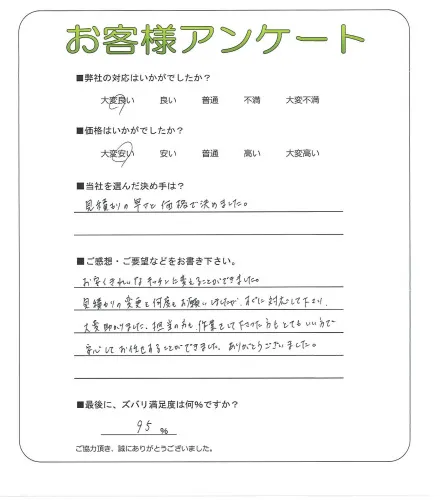 お客様アンケート
■弊社の対応はいかがでしたか？
大変良い 良い 普通 不満 大変不満
■価格はいかがでしたか？
大変安い 安い 普通 高い 大変高い
■当社を選んだ決め手は？
見積もりの早さと価格で決めました。
■ご感想・ご要望などをお書き下さい。
お安くきれいなキッチンに変えることができました。
見積もりの変更を何度もお願いしましたが、すぐに対応して下さり、
大変助かりました。担当の方も、作業をして下さった方もとてもいい方で
安心してお任せすることができました。ありがとうございました。
■最後に、ズバリ満足度は何％ですか？
95 %
ご協力頂き、誠にありがとうございました。